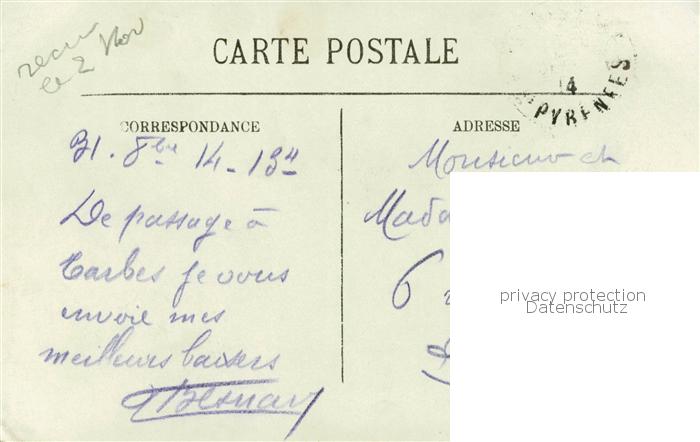 reçu
le 2 Nov
CARTE POSTALE
14
PYRENEES
CORRESPONDANCE
ADRESSE
31. 8bre 14 - 13H
De passage à
Tarbes je vous
envoie mes
meilleurs baisers
Monsieur et
Mada
6
privacy protection
Datenschutz